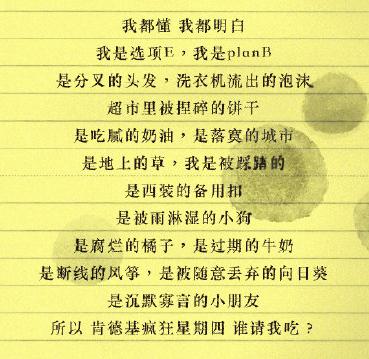 我都懂 我都明白
我是选项E，我是planB
是分叉的头发，洗衣机流出的泡沫
超市里被捏碎的饼干
是吃腻的奶油，是落寞的城市
是地上的草，我是被踩踏的
是西装的备用扣
是被雨淋湿的小狗
是腐烂的橘子，是过期的牛奶
是断线的风筝，是被随意丢弃的向日葵
是沉默寡言的小朋友
所以 肯德基疯狂星期四 谁请我吃？